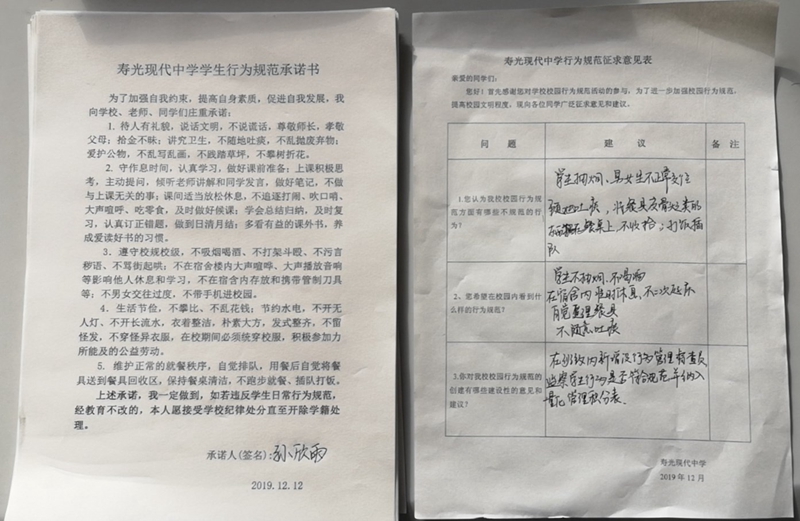 寿光现代中学学生行为规范承诺书
为了加强自我约束，提高自身素质，促进自我发展，我
向学校、老师、同学们庄重承诺：
1. 待人有礼貌，说话文明，不说谎话，尊敬师长，孝敬
父母；拾金不昧；讲究卫生，不随地吐痰，不乱抛废弃物；
爱护公物，不乱写乱画，不践踏草坪，不攀树折花。
2. 守作息时间，认真学习，做好课前准备；上课积极思
考，主动提问，倾听老师讲解和同学发言，做好笔记，不做
与上课无关的事；课间适当放松休息，不追逐打闹、吹口哨、
大声喧哗、吃零食，及时做好候课；学会总结归纳，及时复
习，认真订正错题，做到日清月结；多看有益的课外书，养
成爱读好书的习惯。
3. 遵守校规校级，不吸烟喝酒、不打架斗殴、不污言
秽语、不骂街起哄；不在宿舍楼内大声喧哗、大声播放音响
等影响他人休息和学习，不在宿舍内存放和携带管制刀具
等；不男女交往过度，不带手机进校园。
4. 生活节俭，不攀比、不乱花钱；节约水电，不开无
人灯、不开长流水，衣着整洁，朴素大方，发式整齐，不留
怪发，不穿怪异衣服，在校期间必须统穿校服，积极参加力
所能及的公益劳动。
5. 维护正常的就餐秩序，自觉排队，用餐后自觉将餐
具送到餐具回收区，保持餐桌清洁，不跑步就餐、插队打饭。
上述承诺，我一定做到，如若违反学生日常行为规范，
经教育不改的，本人愿接受学校纪律处分直至开除学籍处
理。
承诺人(签名)：孙欣雨
2019.12.12
寿光现代中学行为规范征求意见表
亲爱的同学们：
您好！首先感谢您对学校校园行为规范活动的参与，为了进一步加强校园行为规范，
提高校园文明程度，现向各位同学广泛征求意见和建议。
问 题 建 议 备 注
1.您认为我校校园行为规
范方面有哪些不规范的行
为？
学生抽烟、男女生不正常交往
随地吐痰，将餐具及骨头之类的
餐桌上，不收拾；打饭插
队
2、您希望在校园内看到什
么样的行为规范？
学生不抽烟、不喝酒
在宿舍内准时休息，不二次起床
自觉整理餐具
不随意吐痰
3.你对我校校园行为规范的
创建有哪些建设性的意见和
建议？
在班级内新增设行为管理检查员
监察学生行为是否符合规范并纳入
量化管理积分表.
寿光现代中学
2019 年 12 月